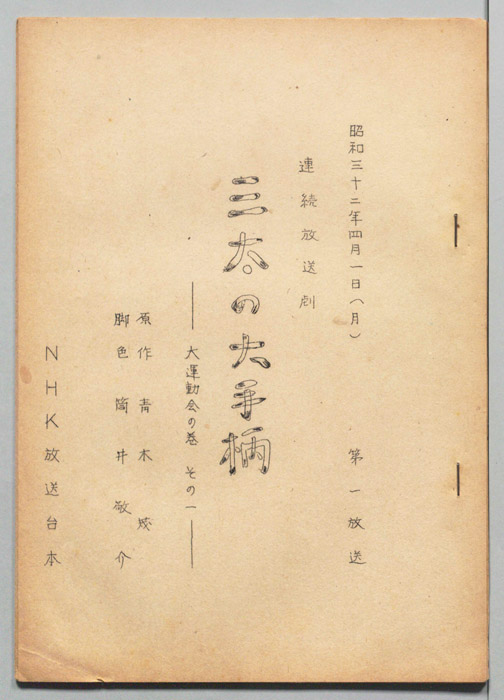 昭和三十二年四月一日（月）　第一放送
連続放送劇
三太の大手柄
――大運動会の巻　その一――
原作　青木　茂
脚色　筒井敬介
NHK放送台本